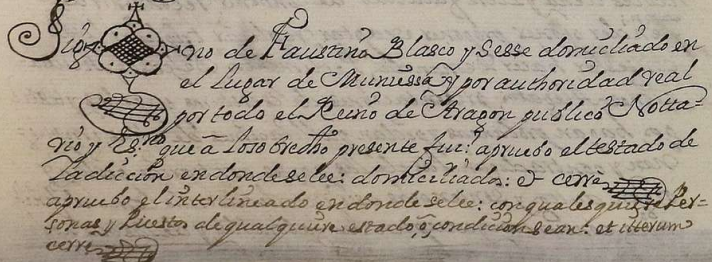 Sig no de Faustino Blasco y Sesse domiciliado en
el Lugar de Muniessa y por authoridad real
por todo el Reino de Aragon publico Notta=
rio y Es.no que à lo sobre dho presente fui: apruebo el testado de
la diccion en donde se lee: domiciliado: et cerrè
apruebo el interlineado en donde se lee: con qualesquiere Per=
sonas y Puestos de qualquiere estado, ò condicion sean: et itterum
cerrè